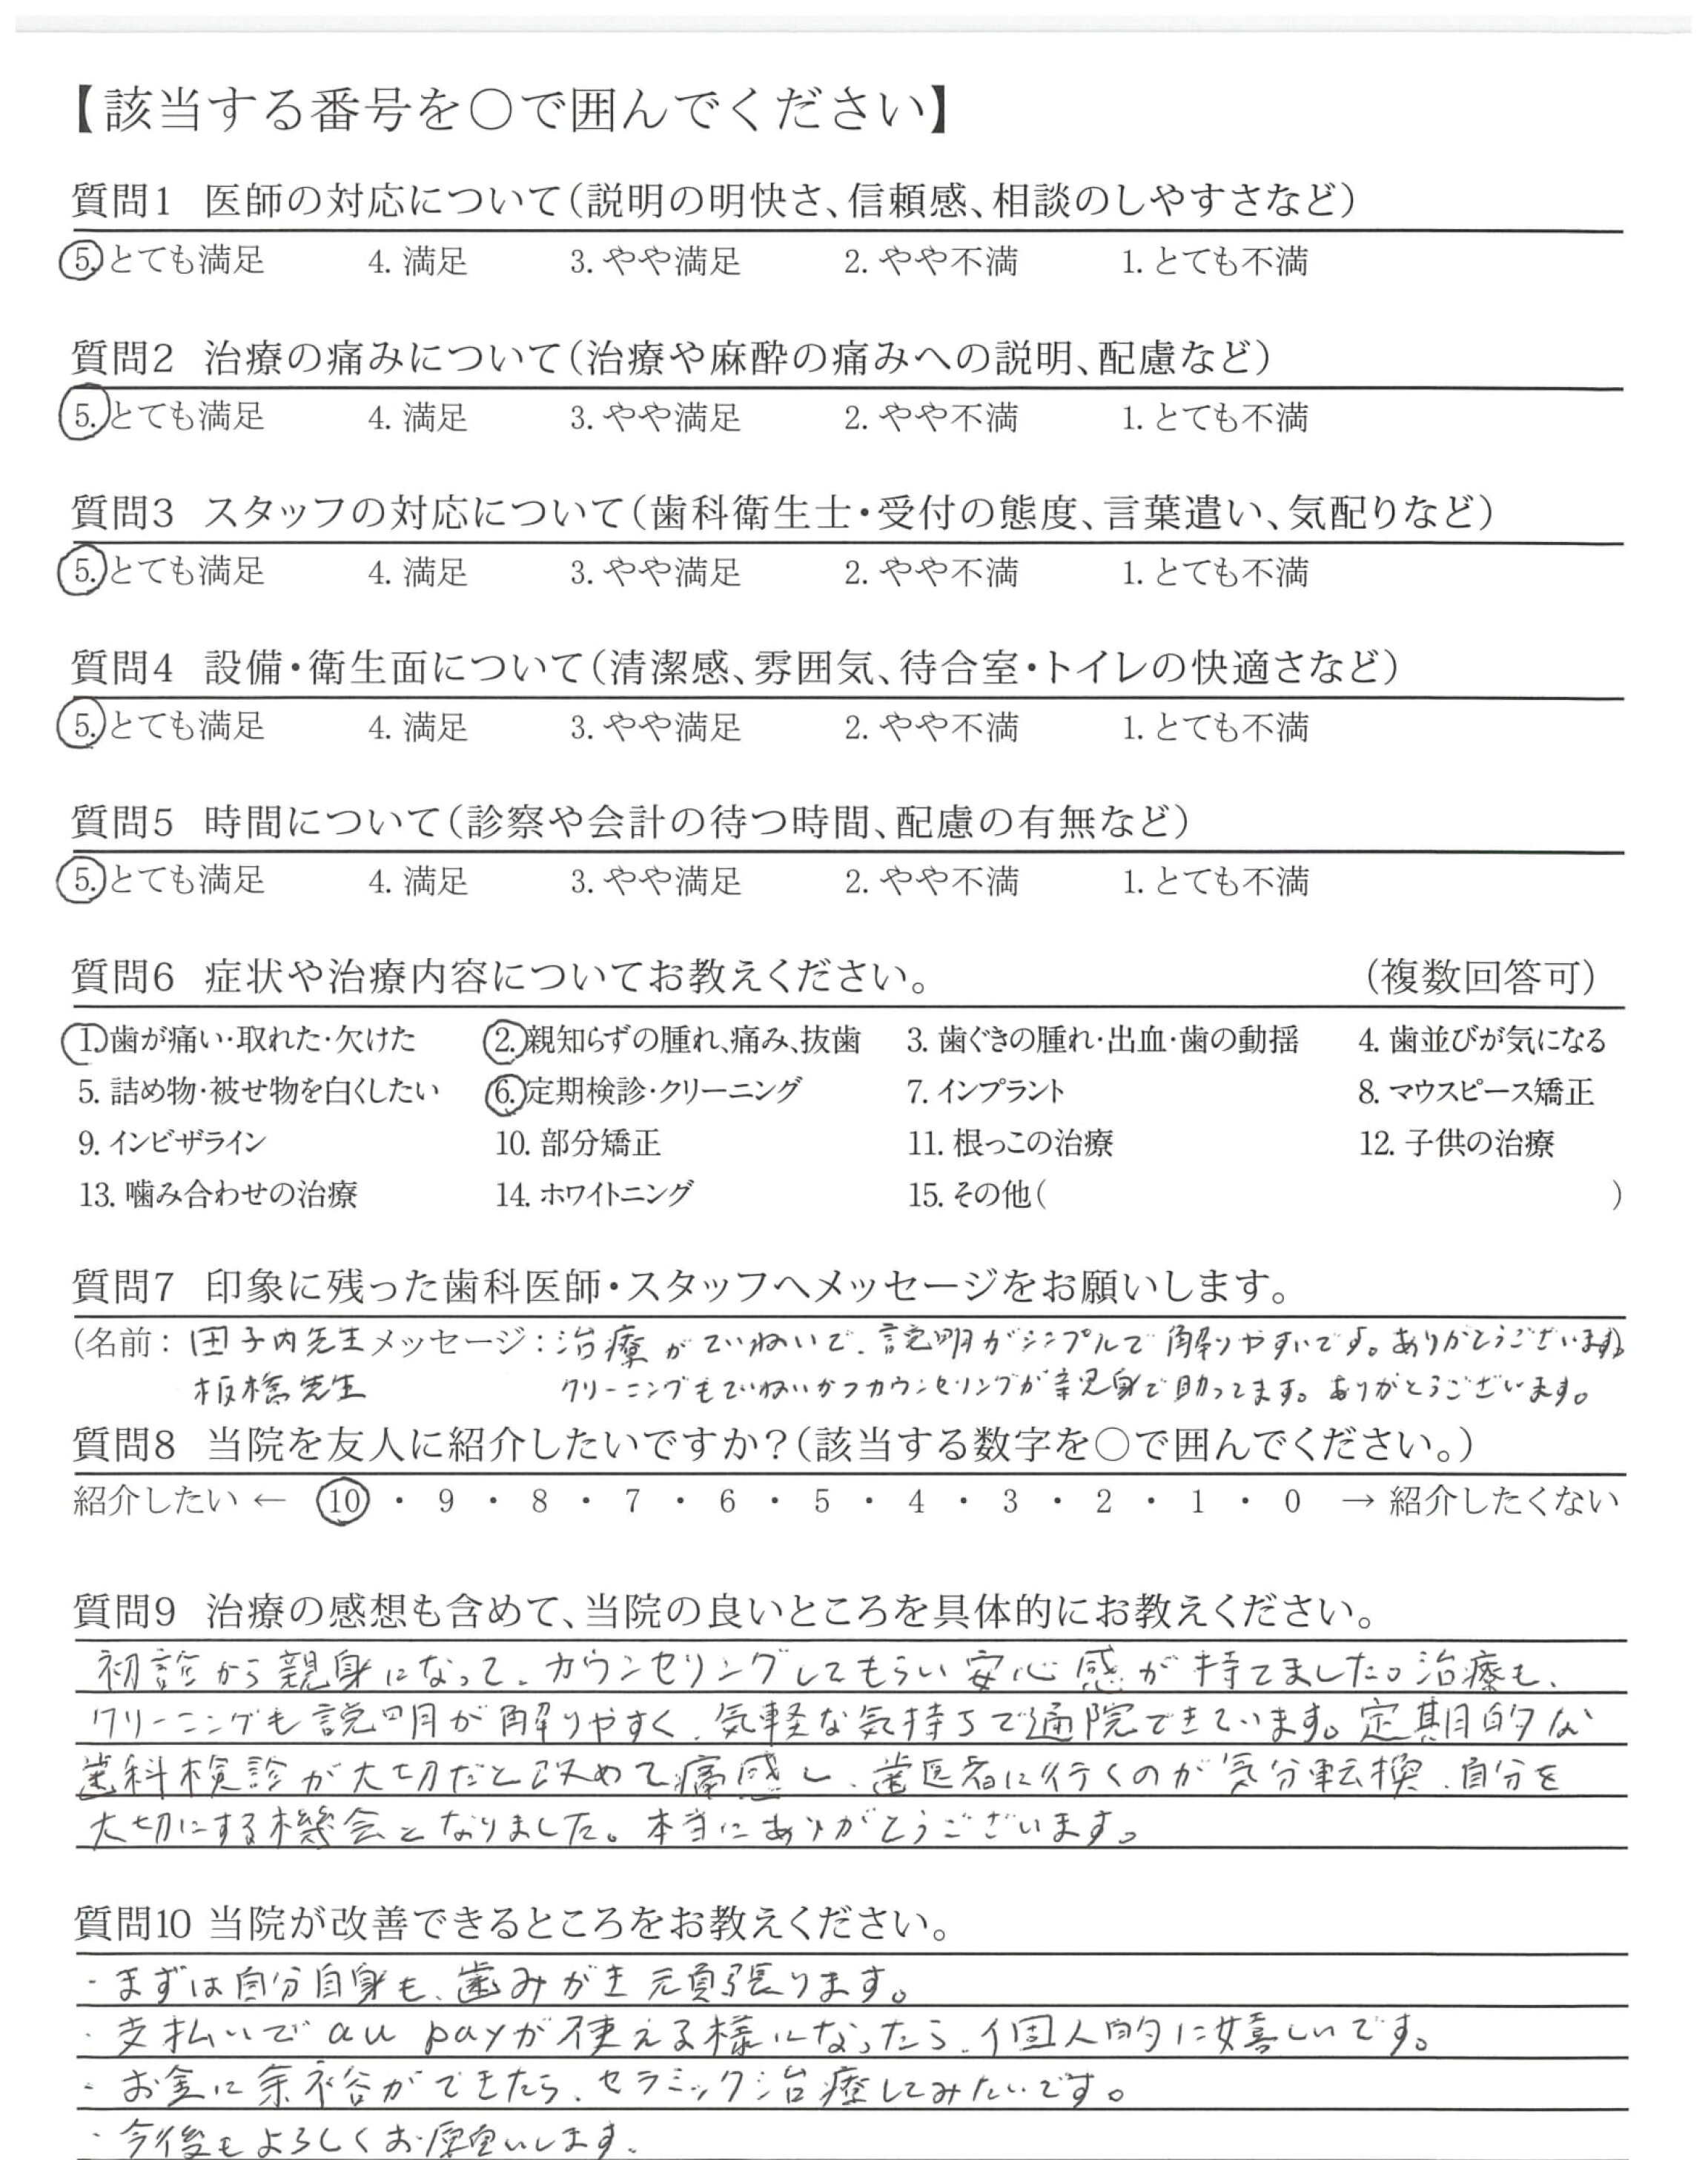 【該当する番号を○で囲んでください】
質問1 医師の対応について(説明の明快さ、信頼感、相談のしやすさなど)
5. とても満足 4. 満足 3. やや満足 2. やや不満 1. とても不満
質問2 治療の痛みについて(治療や麻酔の痛みへの説明、配慮など)
5. とても満足 4. 満足 3. やや満足 2. やや不満 1. とても不満
質問3 スタッフの対応について(歯科衛生士・受付の態度、言葉遣い、気配りなど)
5. とても満足 4. 満足 3. やや満足 2. やや不満 1. とても不満
質問4 設備・衛生面について(清潔感、雰囲気、待合室・トイレの快適さなど)
5. とても満足 4. 満足 3. やや満足 2. やや不満 1. とても不満
質問5 時間について(診察や会計の待つ時間、配慮の有無など)
5. とても満足 4. 満足 3. やや満足 2. やや不満 1. とても不満
質問6 症状や治療内容についてお教えください。 (複数回答可)
1. 歯が痛い・取れた・欠けた 2. 親知らずの腫れ、痛み、抜歯 3. 歯ぐきの腫れ・出血・歯の動揺 4. 歯並びが気になる
5. 詰め物・被せ物を白くしたい 6. 定期検診・クリーニング 7. インプラント 8. マウスピース矯正
9. インビザライン 10. 部分矯正 11. 根っこの治療 12. 子供の治療
13. 噛み合わせの治療 14. ホワイトニング 15. その他( )
質問7 印象に残った歯科医師・スタッフへメッセージをお願いします。
(名前: 田子内先生 メッセージ: 治療がていねいで、説明がシンプルで解りやすいです。ありがとうございます)
板橋先生 クリーニングもていねいかつカウンセリングが親身で助ってます。ありがとうございます。
質問8 当院を友人に紹介したいですか?(該当する数字を○で囲んでください。)
紹介したい ← 10 ・ 9 ・ 8 ・ 7 ・ 6 ・ 5 ・ 4 ・ 3 ・ 2 ・ 1 ・ 0 → 紹介したくない
質問9 治療の感想も含めて、当院の良いところを具体的にお教えください。
初診から親身になって、カウンセリングしてもらい安心感が持てました。治療も、
クリーニングも説明が解りやすく、気軽な気持ちで通院できています。定期的な
歯科検診が大切だと改めて痛感し、歯医者に行くのが気分転換、自分を
大切にする機会となりました。本当にありがとうございます。
質問10 当院が改善できるところをお教えください。
・まずは自分自身も、歯みがき頑張ります。
・支払いでau payが使える様になったら、個人的に嬉しいです。
・お金に余裕ができたら、セラミック治療してみたいです。
・今後もよろしくお願いします。